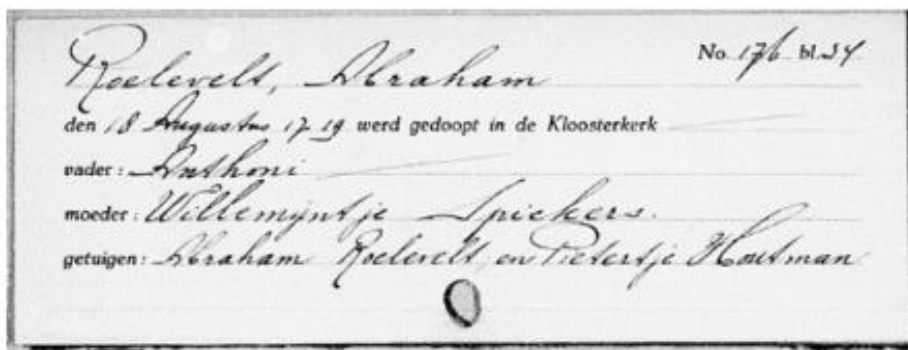 No. 176 bl. 34
Roelevelt, Abraham
den 18 Augustus 1719 werd gedoopt in de Kloosterkerk
vader: Anthoni
moeder: Willemijntje Spiekers.
getuigen: Abraham Roelevelt, en Pietertje Houtman